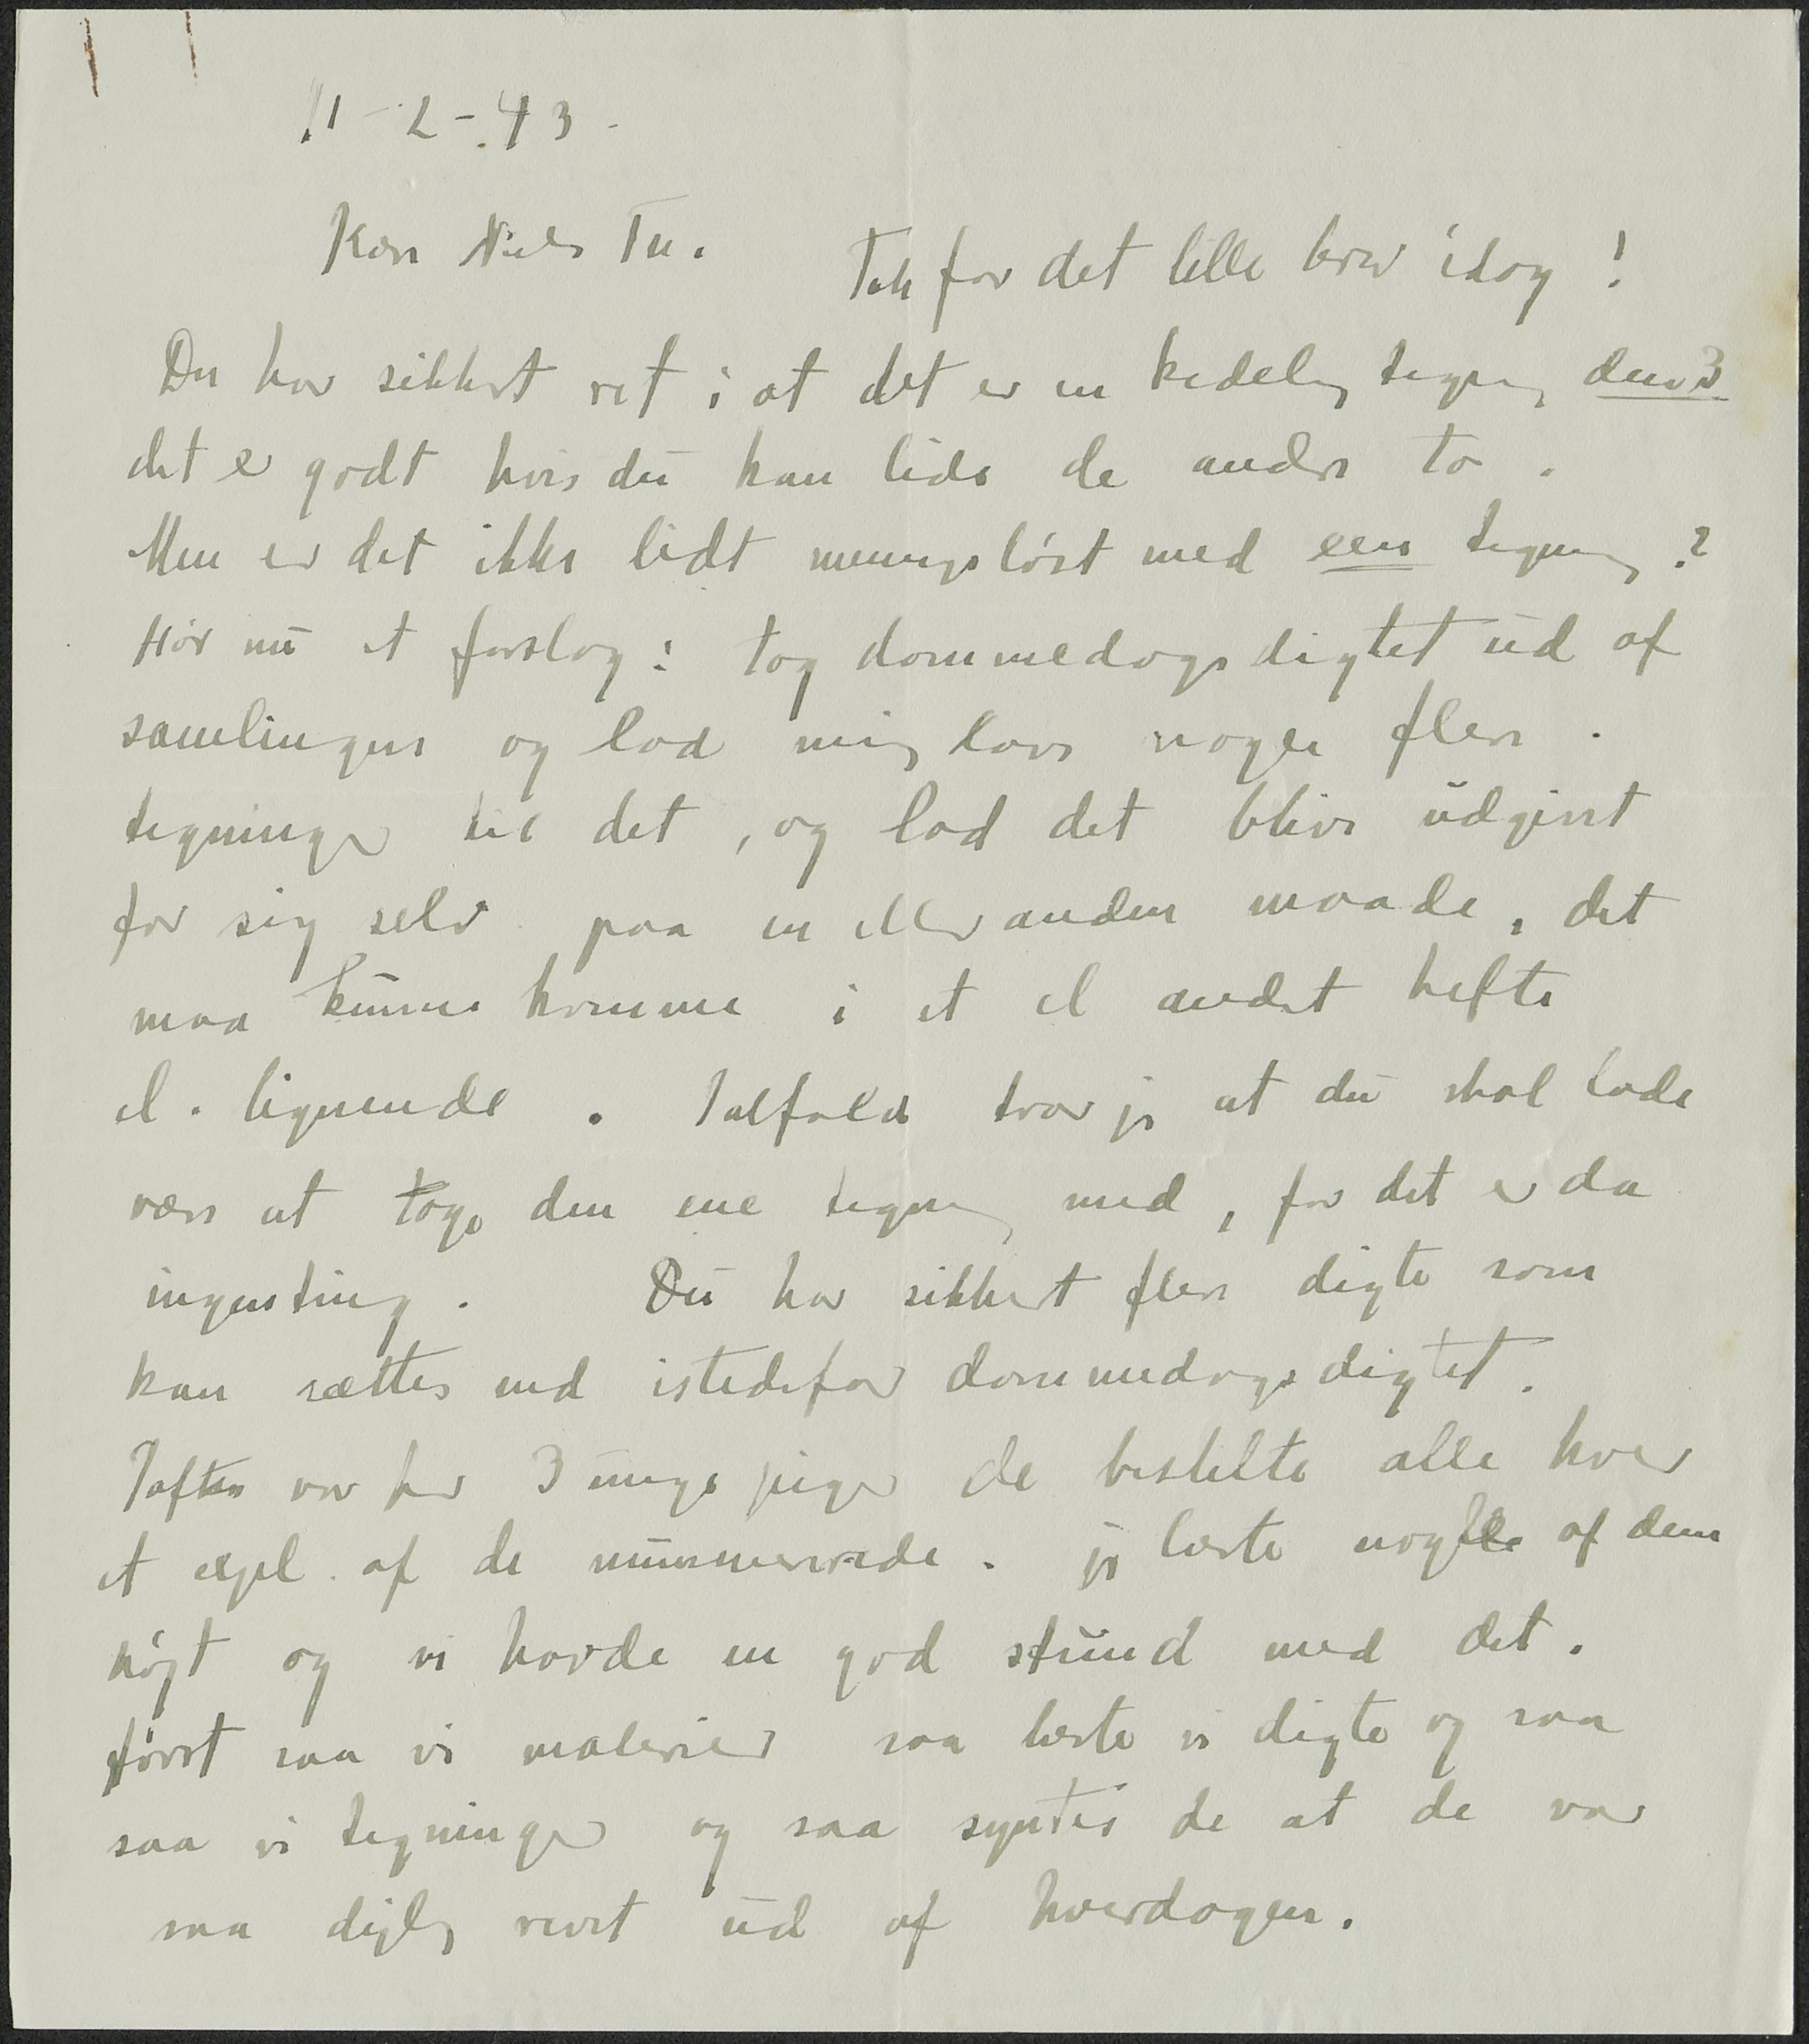 11-2-43.
Kære Niels Th.
Tak for det lille brev idag!
Du har sikkert ret i at det er en kedelig tegning den 3
det er godt hvis du kan lide de andre to.
Men er det ikke lidt meningsløst med een tegning?
Hør nu et forslag: tag dommedagsdigtet ud af
samlingen og lad mig lave nogle flere
tegninger til det, og lad det blive udgivet
for sig selv paa en eller anden maade, det
maa kunne komme i et el andet hefte
el. lignende. Ialfald tror jeg at du skal lade
være at tage den ene tegning med, for det er da
ingenting. Du har sikkert flere digte som
kan sættes ind istedefor dommedagsdigtet.
Iaftes var her 3 unge piger de bestilte alle hver
et expl. af de nummererede. jeg læste nogle af dem
højt og vi havde en god stund med det.
først saa vi malerier saa læste vi digte og saa
saa vi tegninger og saa syntes de at de var
saa dejlig revet ud af hverdagen.